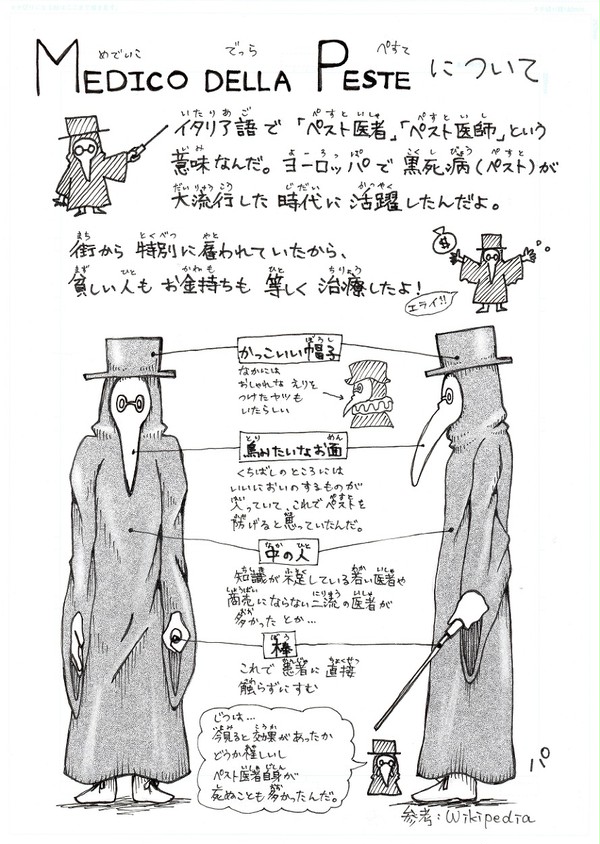 MEDICO DELLA PESTE について
めでぃこ でっら ぺすて
イタリア語で「ペスト医者」「ペスト医師」という
意味なんだ。ヨーロッパで黒死病(ペスト)が
大流行した時代に活躍したんだよ。
街から特別に雇われていたから、
貧しい人もお金持ちも等しく治療したよ!
エライ!!
$
かっこいい帽子
なかには
おしゃれなえりを
つけたヤツも
いたらしい
鳥みたいなお面
くちばしのところには
いいにおいのするものが
入っていて、これでペストを
防げると思っていたんだ。
中の人
知識が不足している若い医者や
商売にならない二流の医者が
多かったとか…
棒
これで患者に直接
触らずにすむ
じつは…
今見ると効果があったか
どうか怪しいし
ペスト医者自身が
死ぬことも多かったんだ。
パ
参考:Wikipedia